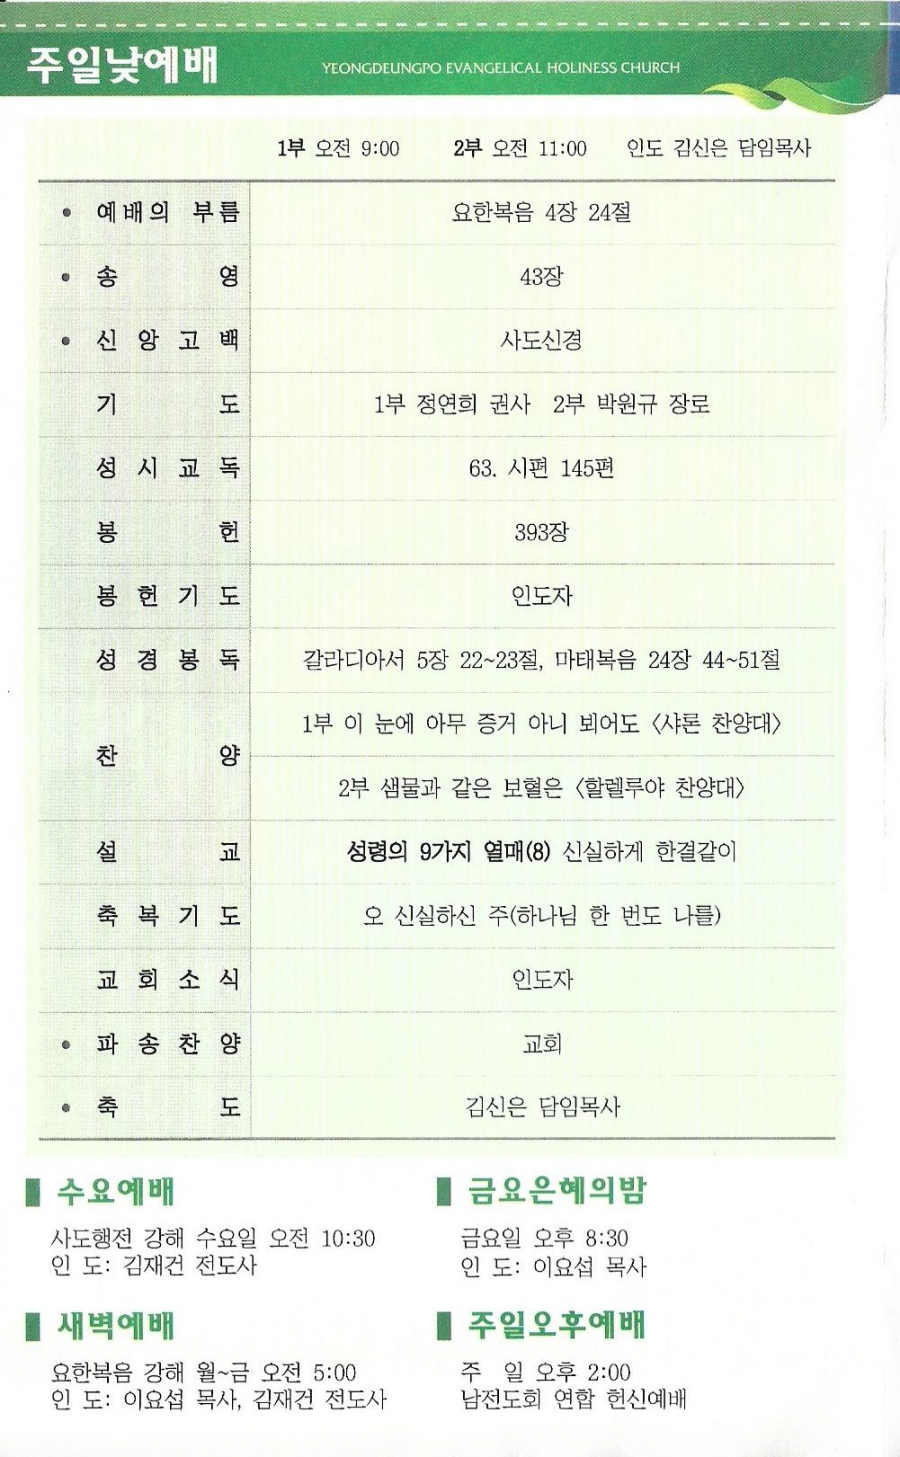 주일낮예배
YEONGDEUNGPO EVANGELICAL HOLINESS CHURCH
1부 오전 9:00 2부 오전 11:00 인도 김신은 담임목사
• 예배의 부름 요한복음 4장 24절
• 송 영 43장
• 신 앙 고 백 사도신경
기 도 1부 정연희 권사 2부 박원규 장로
성 시 교 독 63. 시편 145편
봉 헌 393장
봉 헌 기 도 인도자
성 경 봉 독 갈라디아서 5장 22~23절, 마태복음 24장 44~51절
찬 양 1부 이 눈에 아무 증거 아니 뵈어도 〈샤론 찬양대〉
2부 샘물과 같은 보혈은 〈할렐루야 찬양대〉
설 교 성령의 9가지 열매(8) 신실하게 한결같이
축 복 기 도 오 신실하신 주(하나님 한 번도 나를)
교 회 소 식 인도자
• 파 송 찬 양 교회
• 축 도 김신은 담임목사
수요예배
사도행전 강해 수요일 오전 10:30
인 도: 김재건 전도사
금요은혜의밤
금요일 오후 8:30
인 도: 이요섭 목사
새벽예배
요한복음 강해 월~금 오전 5:00
인 도: 이요섭 목사, 김재건 전도사
주일오후예배
주 일 오후 2:00
남전도회 연합 헌신예배